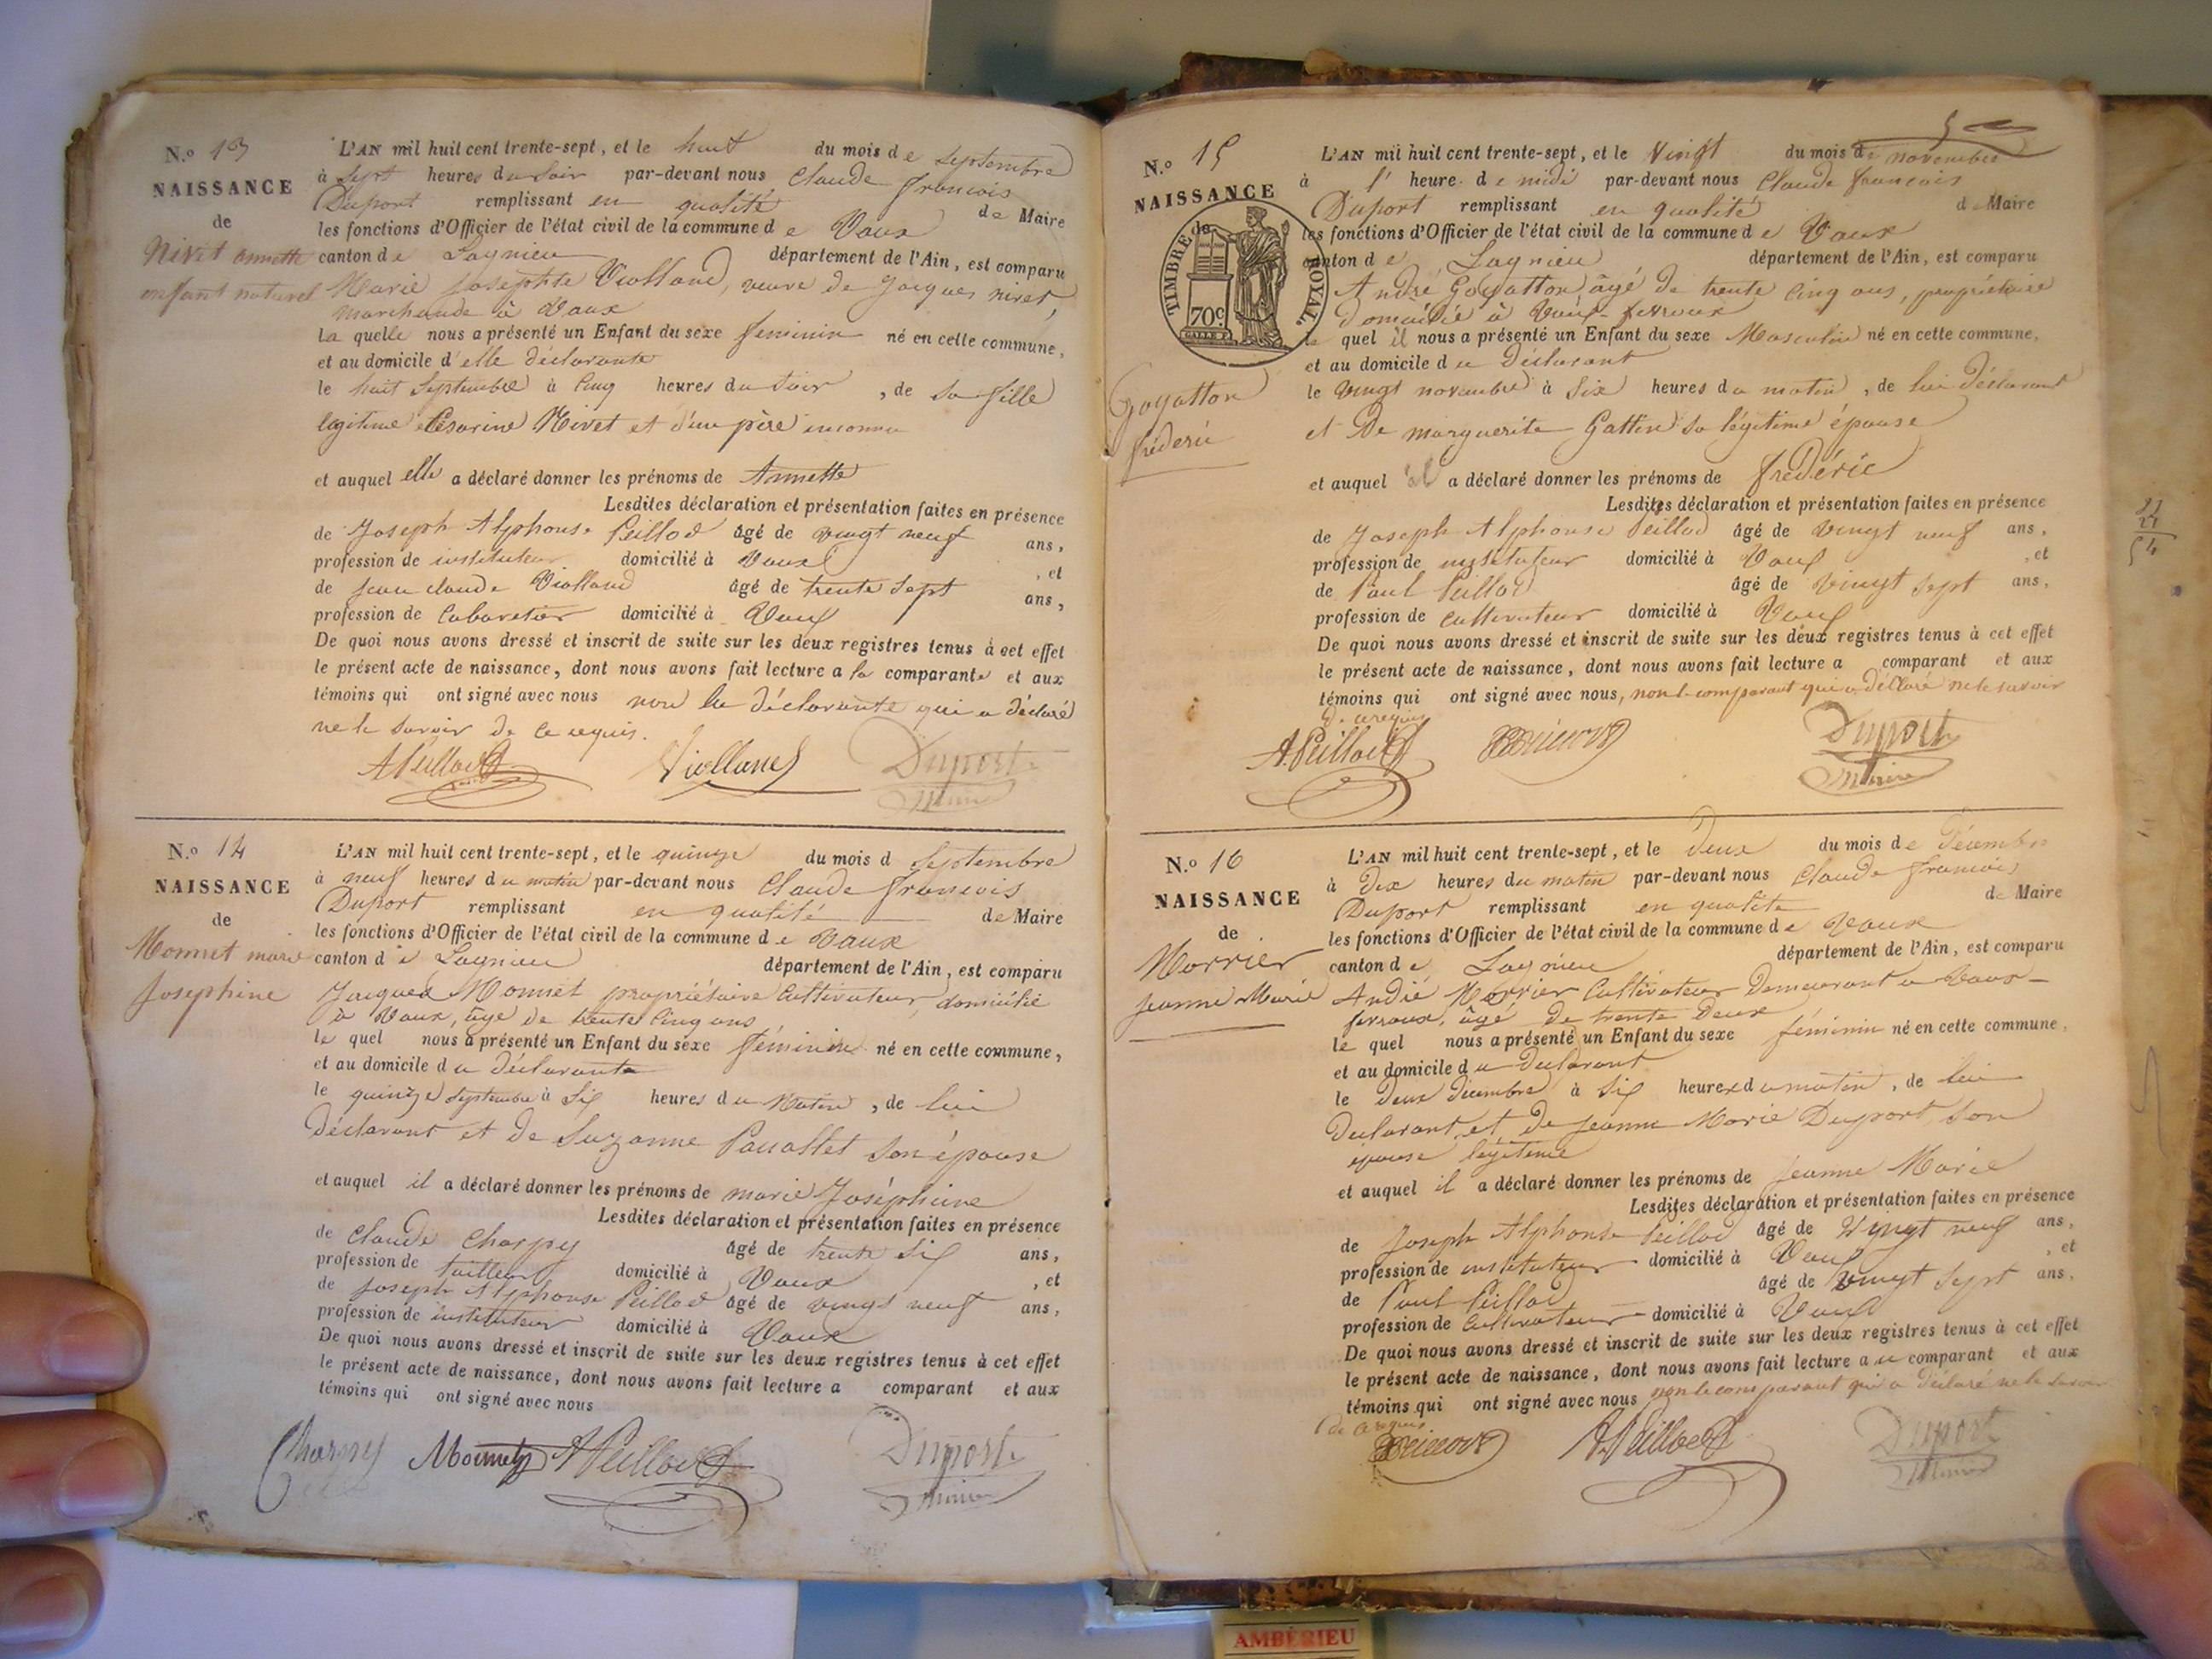 N.o 13
NAISSANCE
de
Nivet annette
enfant naturel
L'AN mil huit cent trente-sept, et le huit du mois de septembre
à sept heures du soir par-devant nous Claude francois
Duport remplissant en qualité de Maire
les fonctions d'Officier de l'état civil de la commune de Vaux
canton de Lagnieu département de l'Ain, est comparu
Marie Josephte Violland, veuve de Jacques nivet,
marchande à Vaux
la quelle nous a présenté un Enfant du sexe feminin né en cette commune,
et au domicile d'elle déclarante
le huit Septembre à cinq heures du soir, de sa fille
légitime Césarine Nivet et d'un père inconnu
et auquel elle a déclaré donner les prénoms de Annette
Lesdites déclaration et présentation faites en présence
de Joseph Alphonse Peillod âgé de vingt neuf ans,
profession de instituteur domicilié à Vaux, et
de jean claude Violland âgé de trente sept ans,
profession de Cabaretier domicilié à Vaux
De quoi nous avons dressé et inscrit de suite sur les deux registres tenus à cet effet
le présent acte de naissance, dont nous avons fait lecture a la comparante et aux
témoins qui ont signé avec nous non la déclarante qui a déclaré
ne le savoir de ce requis.
APeillod Violland Duport
Maire
N.o 14
NAISSANCE
de
Monnet marie
Josephine
L'AN mil huit cent trente-sept, et le quinze du mois d Septembre
à neuf heures du matin par-devant nous Claude francois
Duport remplissant en qualité de Maire
les fonctions d'Officier de l'état civil de la commune de Vaux
canton de Lagnieu département de l'Ain, est comparu
Jacques Monnet propriétaire Cultivateur, domicilié
à Vaux, âgé de trente cinq ans
le quel nous a présenté un Enfant du sexe féminin né en cette commune,
et au domicile du déclarante
le quinze Septembre à Six heures du Matin, de lui
déclarant et de Suzanne son épouse
et auquel il a déclaré donner les prénoms de marie Joséphine
Lesdites déclaration et présentation faites en présence
de Claude Charpy âgé de trente six ans,
profession de tailleur domicilié à Vaux, et
de Joseph Alphonse Peillod âgé de vingt neuf ans,
profession de instituteur domicilié à Vaux
De quoi nous avons dressé et inscrit de suite sur les deux registres tenus à cet effet
le présent acte de naissance, dont nous avons fait lecture a comparant et aux
témoins qui ont signé avec nous
Charpy Monnet APeillod Duport
Maire
N.o 15
NAISSANCE
de
TIMBRE ROYAL.
70c
Goyatton
fréderic
L'AN mil huit cent trente-sept, et le Vingt du mois de novembre
à 1' heure de midi par-devant nous Claude francois
Duport remplissant en qualité d Maire
les fonctions d'Officier de l'état civil de la commune de Vaux
canton de Lagnieu département de l'Ain, est comparu
André Goyatton âgé de trente cinq ans, propriétaire
domicilié à Vaux-fevroux
le quel il nous a présenté un Enfant du sexe Masculin né en cette commune,
et au domicile du Déclarant
le vingt novembre à six heures du matin, de lui déclarant
et de marguerite Gattin sa légitime épouse
et auquel il a déclaré donner les prénoms de frédéric
Lesdites déclaration et présentation faites en présence
de Joseph Alphonse Peillod âgé de vingt neuf ans,
profession de instituteur domicilié à Vaux, et
de Paul Peillod âgé de vingt sept ans,
profession de cultivateur domicilié à Vaux
De quoi nous avons dressé et inscrit de suite sur les deux registres tenus à cet effet
le présent acte de naissance, dont nous avons fait lecture a comparant et aux
témoins qui ont signé avec nous, non le comparant qui a déclaré ne le savoir
de ce requis
A.Peillod Duport
Maire
N.o 16
NAISSANCE
de
Morrier
Jeanne Marie
L'AN mil huit cent trente-sept, et le deux du mois de Décembre
à dix heures du matin par-devant nous Claude francois
Duport remplissant en qualité de Maire
les fonctions d'Officier de l'état civil de la commune de Vaux
canton de Lagnieu département de l'Ain, est comparu
André Morrier Cultivateur Demeurant a Vaux-
fevroux, âgé de trente deux
le quel nous a présenté un Enfant du sexe féminin né en cette commune,
et au domicile du Déclarant
le deux Décembre à Six heures du matin, de lui
Déclarant et de jeanne Marie Duport, son
épouse légitime
et auquel il a déclaré donner les prénoms de Jeanne Marie
Lesdites déclaration et présentation faites en présence
de Joseph Alphonse Peillod âgé de Vingt neuf ans,
profession de instituteur domicilié à Vaux, et
de Paul Peillod âgé de vingt sept ans,
profession de Cultivateur domicilié à Vaux
De quoi nous avons dressé et inscrit de suite sur les deux registres tenus à cet effet
le présent acte de naissance, dont nous avons fait lecture a u comparant et aux
témoins qui ont signé avec nous non le comparant qui a déclaré ne le savoir
de ce requis
A.Peillod Duport
Maire
AMBÉRIEU